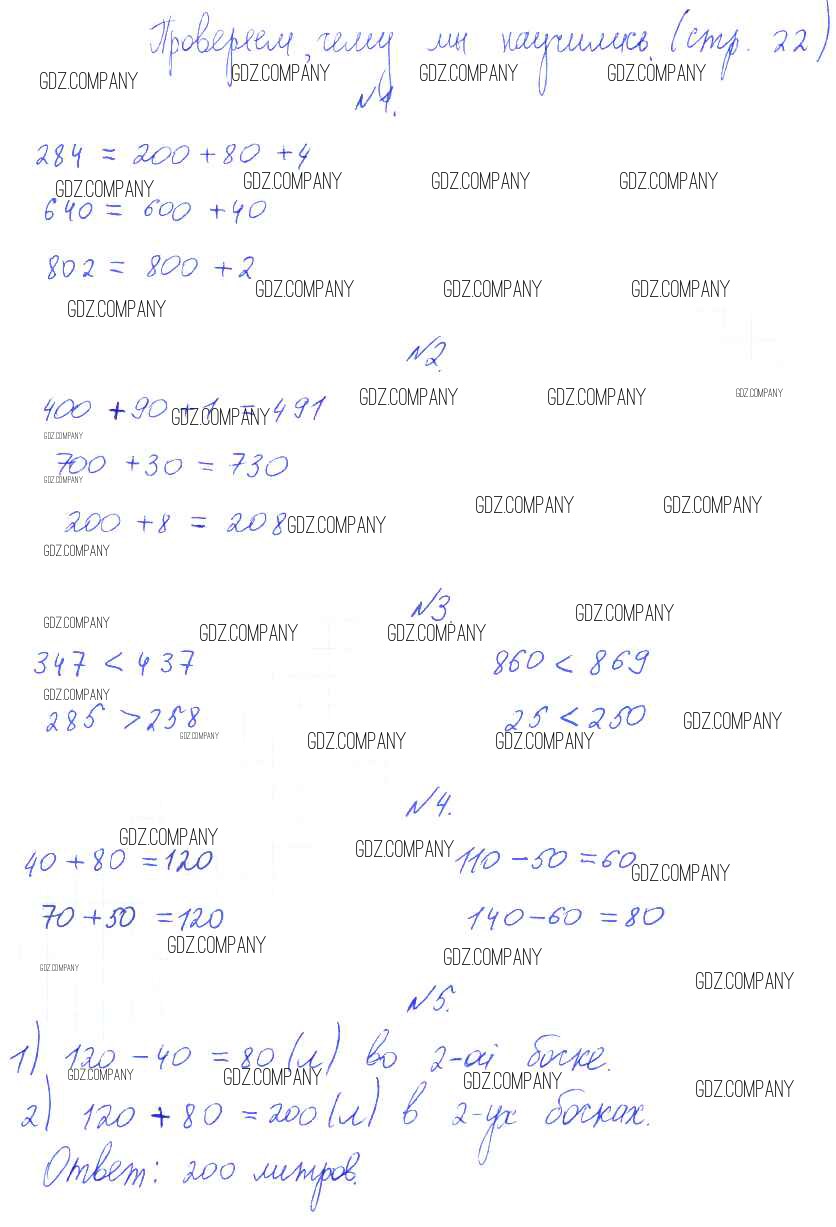 Проверяем, чему мы научились (стр. 22)
GDZ.COMPANY GDZ.COMPANY GDZ.COMPANY GDZ.COMPANY
№1.
284 = 200 + 80 + 4
GDZ.COMPANY GDZ.COMPANY GDZ.COMPANY GDZ.COMPANY
640 = 600 + 40
802 = 800 + 2
GDZ.COMPANY GDZ.COMPANY GDZ.COMPANY GDZ.COMPANY
№2.
400 + 90 + 1 = 491
GDZ.COMPANY GDZ.COMPANY GDZ.COMPANY GDZ.COMPANY
GDZ.COMPANY
700 + 30 = 730
GDZ.COMPANY
200 + 8 = 208
GDZ.COMPANY GDZ.COMPANY GDZ.COMPANY
GDZ.COMPANY
№3.
GDZ.COMPANY GDZ.COMPANY GDZ.COMPANY GDZ.COMPANY
347 < 437 860 < 869
GDZ.COMPANY
285 > 258 25 < 250
GDZ.COMPANY GDZ.COMPANY GDZ.COMPANY GDZ.COMPANY
№4.
GDZ.COMPANY GDZ.COMPANY GDZ.COMPANY
40 + 80 = 120 110 - 50 = 60
70 + 50 = 120 140 - 60 = 80
GDZ.COMPANY GDZ.COMPANY GDZ.COMPANY GDZ.COMPANY
№5.
1) 120 - 40 = 80 (л) во 2-ой бочке.
GDZ.COMPANY GDZ.COMPANY GDZ.COMPANY GDZ.COMPANY
2) 120 + 80 = 200 (л) в 2-ух бочках.
Ответ: 200 литров.